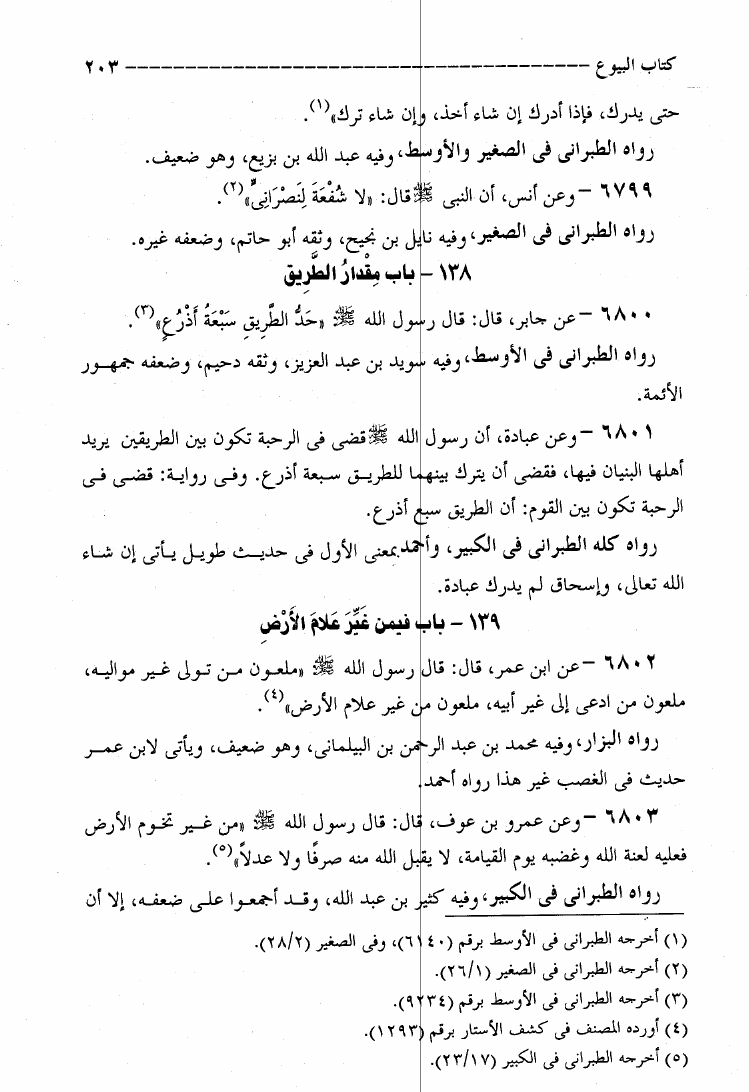 كتاب البيوع ــــــــــــــــــــــــــــــــــــــــ ٢٠٣
حتى يدرك، فإذا أدرك إن شاء أخذ، وإن شاء ترك»(١).
رواه الطبرانى فى الصغير والأوسط، وفيه عبد الله بن بزيع، وهو ضعيف.
٦٧٩٩ – وعن أنس، أن النبى ﷺ قال: «لا شُفْعَةَ لِنَصْرَانِىٍّ»(٢).
رواه الطبرانى فى الصغير، وفيه نايل بن نجيح، وثقه أبو حاتم، وضعفه غيره.
١٣٨ – باب مِقْدارُ الطَّرِيق
٦٨٠٠ – عن جابر، قال: قال رسول الله ﷺ «حَدُّ الطَّرِيقِ سَبْعَةُ أَذْرُعٍ»(٣).
رواه الطبرانى فى الأوسط، وفيه سويد بن عبد العزيز، وثقه دحيم، وضعفه جمهور
الأئمة.
٦٨٠١ – وعن عبادة، أن رسول الله ﷺ قضى فى الرحبة تكون بين الطريقين يريد
أهلها البنيان فيها، فقضى أن يترك بينهما للطريق سبعة أذرع. وفى رواية: قضى فى
الرحبة تكون بين القوم: أن الطريق سبع أذرع.
رواه كله الطبرانى فى الكبير، وأحمد بمعنى الأول فى حديث طويل يأتى إن شاء
الله تعالى، وإسحاق لم يدرك عبادة.
١٣٩ – باب فيمن غَيَّرَ عَلامَ الأَرْضِ
٦٨٠٢ – عن ابن عمر، قال: قال رسول الله ﷺ «ملعون من تولى غير مواليه،
ملعون من ادعى إلى غير أبيه، ملعون من غير علام الأرض»(٤).
رواه البزار، وفيه محمد بن عبد الرحمن بن البيلمانى، وهو ضعيف، ويأتى لابن عمر
حديث فى الغصب غير هذا رواه أحمد.
٦٨٠٣ – وعن عمرو بن عوف، قال: قال رسول الله ﷺ «من غير تخوم الأرض
فعليه لعنة الله وغضبه يوم القيامة، لا يقبل الله منه صرفًا ولا عدلاً»(٥).
رواه الطبرانى فى الكبير، وفيه كثير بن عبد الله، وقد أجمعوا على ضعفه، إلا أن
(١) أخرجه الطبرانى فى الأوسط برقم (٦١٤٠)، وفى الصغير (٢٨/٢).
(٢) أخرجه الطبرانى فى الصغير (٢٦/١).
(٣) أخرجه الطبرانى فى الأوسط برقم (٩٢٣٤).
(٤) أورده المصنف فى كشف الأستار برقم (١٢٩٣).
(٥) أخرجه الطبرانى فى الكبير (٢٣/١٧).